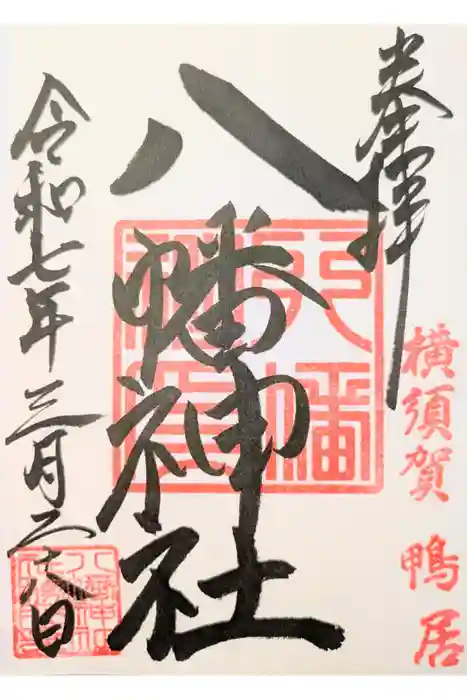 奉拝
横須賀 鴨居
八幡神社
令和七年三月二十八日